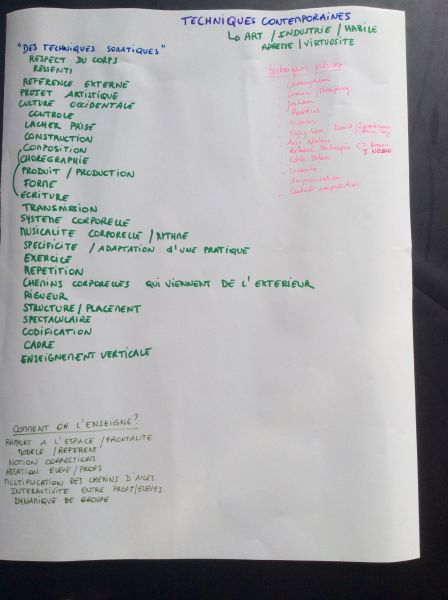 TECHNIQUES CONTEMPORAINES
↳ ART / INDUSTRIE / HABILE
ADRESSE / VIRTUOSITE
"DES TECHNIQUES SOMATIQUES"
RESPECT DU CORPS
RESSENTI
REFERENCE EXTERNE
PROJET ARTISTIQUE
CULTURE OCCIDENTALE
CONTROLE
LACHER PRISE
CONSTRUCTION
COMPOSITION
CHOREGRAPHIE
PRODUIT / PRODUCTION
FORME
ECRITURE
TRANSMISSION
SYSTEME CORPORELLE
MUSICALITE CORPORELLE / RYTHME
SPECIFICITE / ADAPTATION D'UNE PRATIQUE
EXERCICE
REPETITION
CHEMINS CORPORELLES QUI VIENNENT DE L'EXTERIEUR
RIGUEUR
STRUCTURE / PLACEMENT
SPECTACULAIRE
CODIFICATION
CADRE
ENSEIGNEMENT VERTICALE
techniques précises
- Cunningham
- Limon / Humphrey
- Graham
- Hawkins
- Nikolais
Release Technique
J. NELSON
- Improvisation
- Contact improvisation
COMMENT ON L'ENSEIGNE?
RAPPORT A L'ESPACE / FRONTALITE
MODELE / REFERENT
NOTION CORRECTIONS
RELATION ELEVE / PROFS
MULTIPLICATION DES CHEMINS D'ACCES
INTERACTIVITE ENTRE PROFS/ELEVES
DYNAMIQUE DE GROUPE